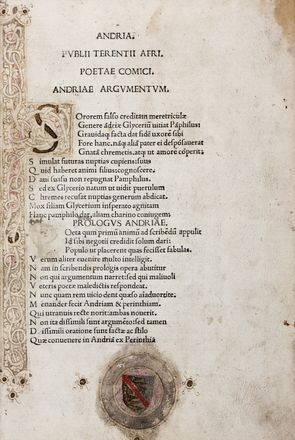 ANDRIA.
PVBLII TERENTII AFRI.
POETAE COMICI.
ANDRIAE ARGVMENTVM.
SOrorem falso creditam meretriculæ
Genere ādriæ Glyceriū uitiat Pāphilus:
Grauidaq; facta dat fidē uxorē sibi
Fore hanc. nāq; aliā pater ei desposauerat
Gnatā chremetis: atq; ut amorē cōperit;
S imulat futuras nuptias cupiens: suus
Q uid haberet animi filius: cognoscere.
D aui suasu non repugnat Pamphilus.
S ed ex Glycerio natum ut uidit puerulum
C hremes recusat nuptias generum abdicat.
Mox filiam Glycerium insperato agnitam
Hanc pamphilo dat, aliam charino coniugem.
PROLOGVS ANDRIAE.
Oeta quum primū animū ad scribēdū appulit
Id sibi negotii credidit solum dari:
Populo ut placerent quas fecisset fabulas.
V erum aliter euenire multo intelligit.
N am in scribendis prologis opera abutitur
N on qui argumentum narret: sed qui maliuoli
V eteris poetæ maledictis respondeat.
N unc quam rem uicio dent quæso aīaduortite.
M enander fecit Andriam & perinthiam.
Qui utranuis recte norit: ambas nouerit.
N on ita dissimili sunt argumēto: sed tamen
D issimili oratione sunt factæ ac stilo
Quæ conuenere in Andriā ex Perinthia